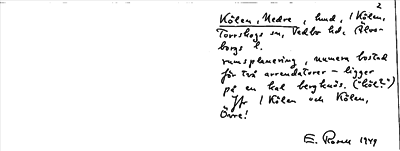 2
Kölen, Nedre, hmd, i Kölen,
Torrskogs sn, Vedbo hd, Älvs-
borgs l.
rumsplanering, numera bostad
för två arrendatorer – ligger
på en kal bergknös. ("köl"!)
Jfr i Kölen och Kölen,
Övre!
E. Rosell 1949